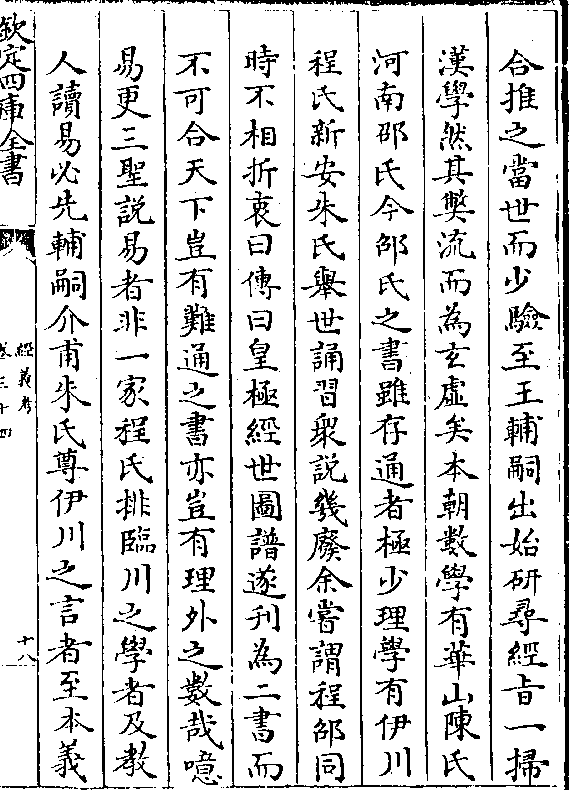 合推之當世而少驗至王輔嗣出始研尋經旨一掃
漢學然其獘流而為玄虛矣本朝數學有華山陳氏
河南邵氏今邵氏之書雖存通者極少理學有伊川
程氏新安朱氏舉世誦習衆説幾廢余嘗謂程邵同
時不相折衷曰傳曰皇極經世圖譜遂刋為二書而
不可合天下豈有難通之書亦豈有理外之數哉噫
易更三聖説易者非一家程氏排臨川之學者及教
人讀易必先輔嗣介甫朱氏尊伊川之言者至本義
欽定四庫全書
經義考
卷三十四
十八